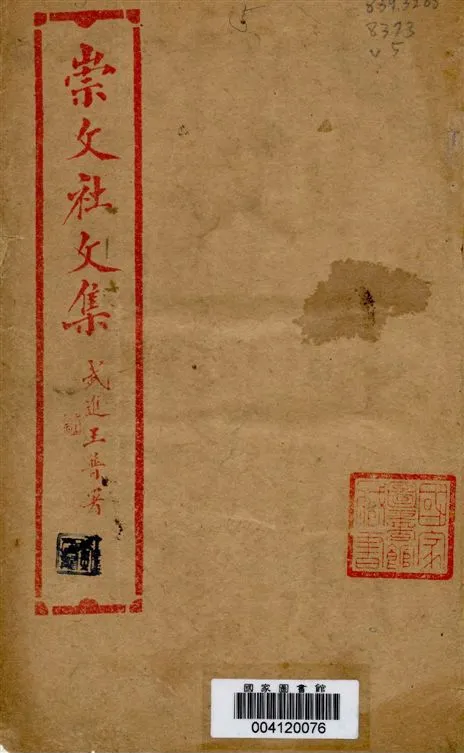 5
839.3208
8373
v 5
崇文社文集
武進王普署
國家圖書館藏書
國家圖書館
004120076